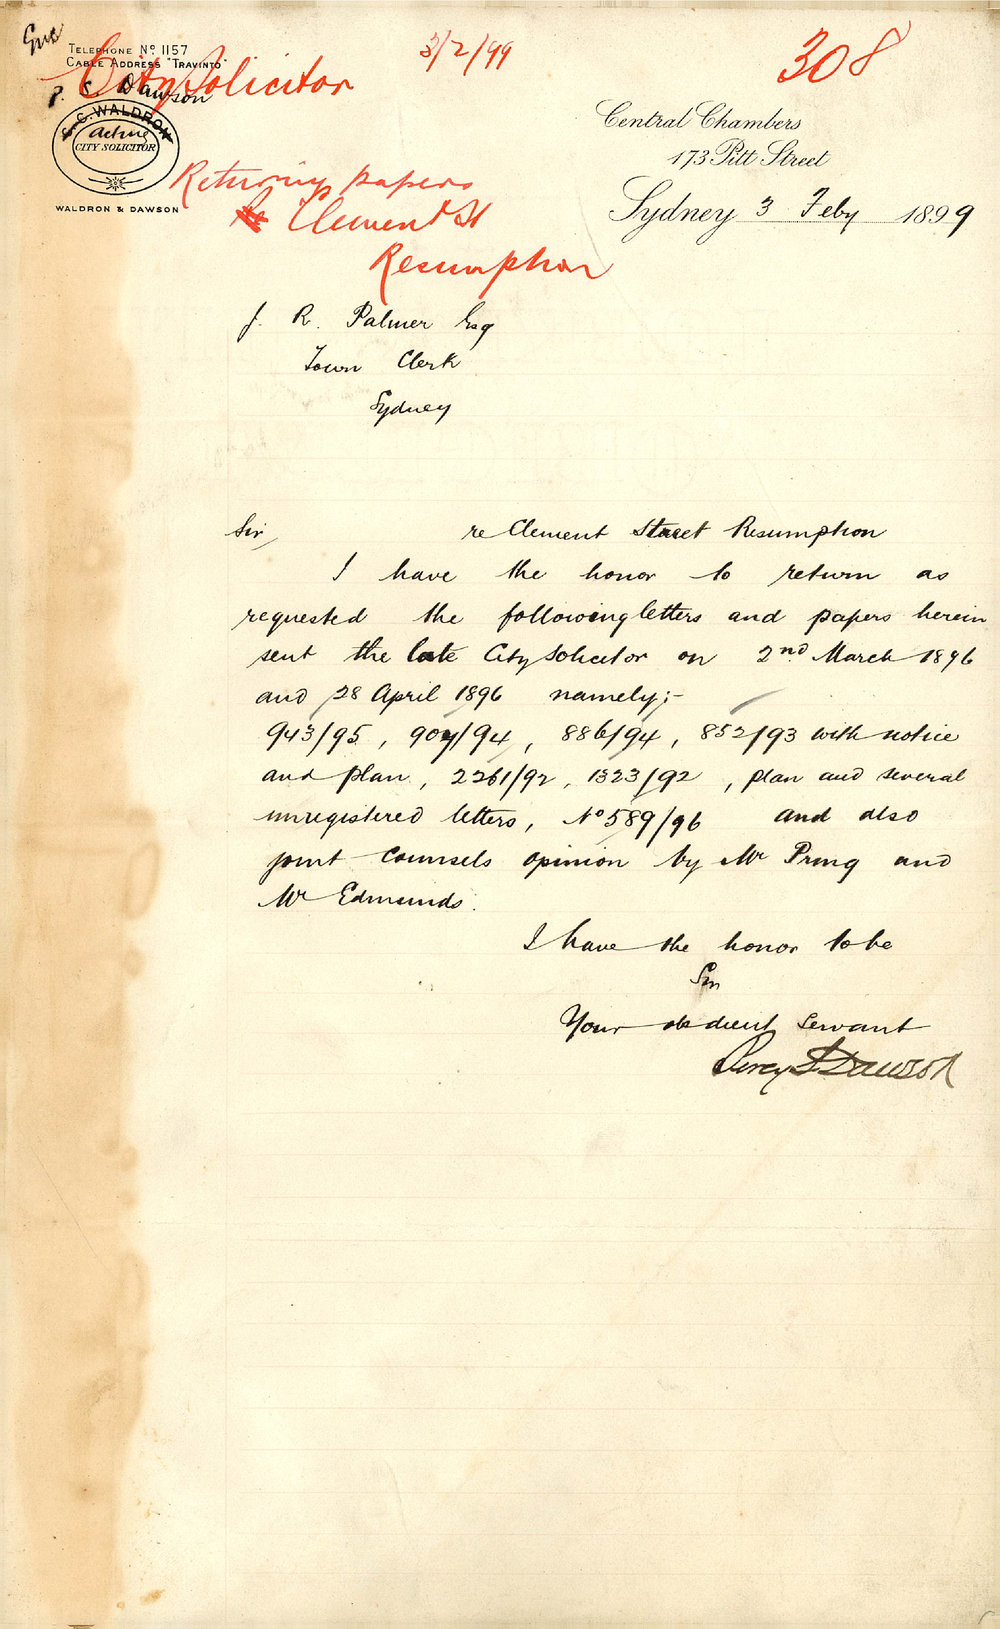 Telephone No 1157
Cable Address "Travinto"
City Solicitor
3/2/99
308
P. S. Dawson
C. C. WALDRON
acting
CITY SOLICITOR
WALDRON & DAWSON
Central Chambers
173 Pitt Street
Sydney 3 Feby 1899
Returning papers
Re Clement St
Resumption
J. R. Palmer Esq
Town Clerk
Sydney
Sir, re Clement Street Resumption
I have the honor to return as
requested the following letters and papers herein
sent the late City Solicitor on 2nd March 1896
and 28 April 1896 namely;-
943/95, 907/94, 886/94, 852/93 with notice
and plan, 2261/92, 1323/92, plan and several
unregistered letters, No 589/96 and also
joint counsels opinion by Mr Pring and
Mr Edmunds.
I have the honor to be
Sir
Your obedient servant
Percy S Dawson